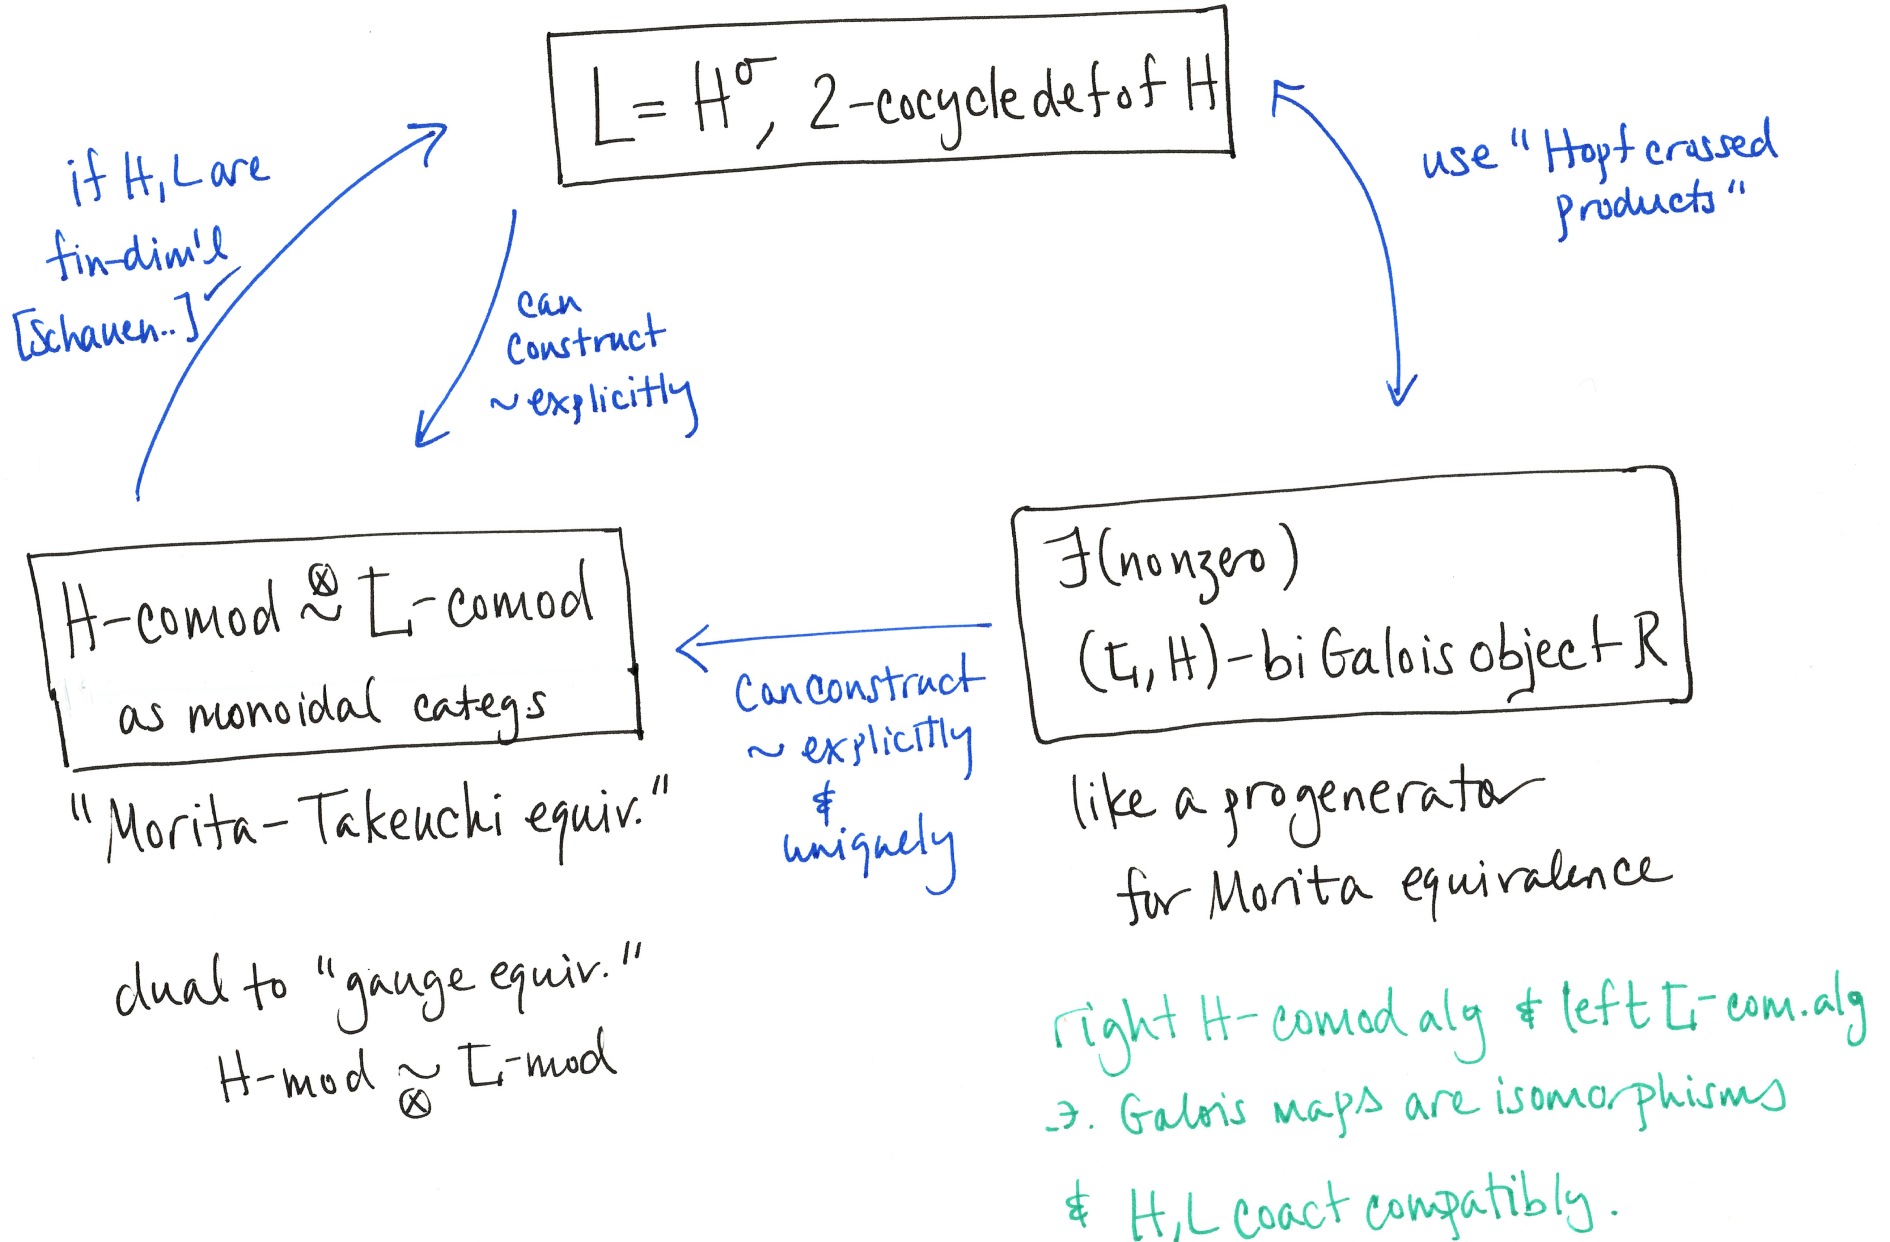 L = H^σ, 2-cocycle def of H
if H, L are
fin-dim'l
[Schauen..]
can
construct
~ explicitly
use "Hopf crossed
products"
H-comod ⊗~ L-comod
as monoidal categs
"Morita-Takeuchi equiv."
dual to "gauge equiv."
H-mod ~⊗ L-mod
can construct
~ explicitly
&
uniquely
∃ (nonzero)
(L, H)-biGalois object R
like a progenerator
for Morita equivalence
right H-comod alg & left L-com.alg
∋. Galois maps are isomorphisms
& H, L coact compatibly.